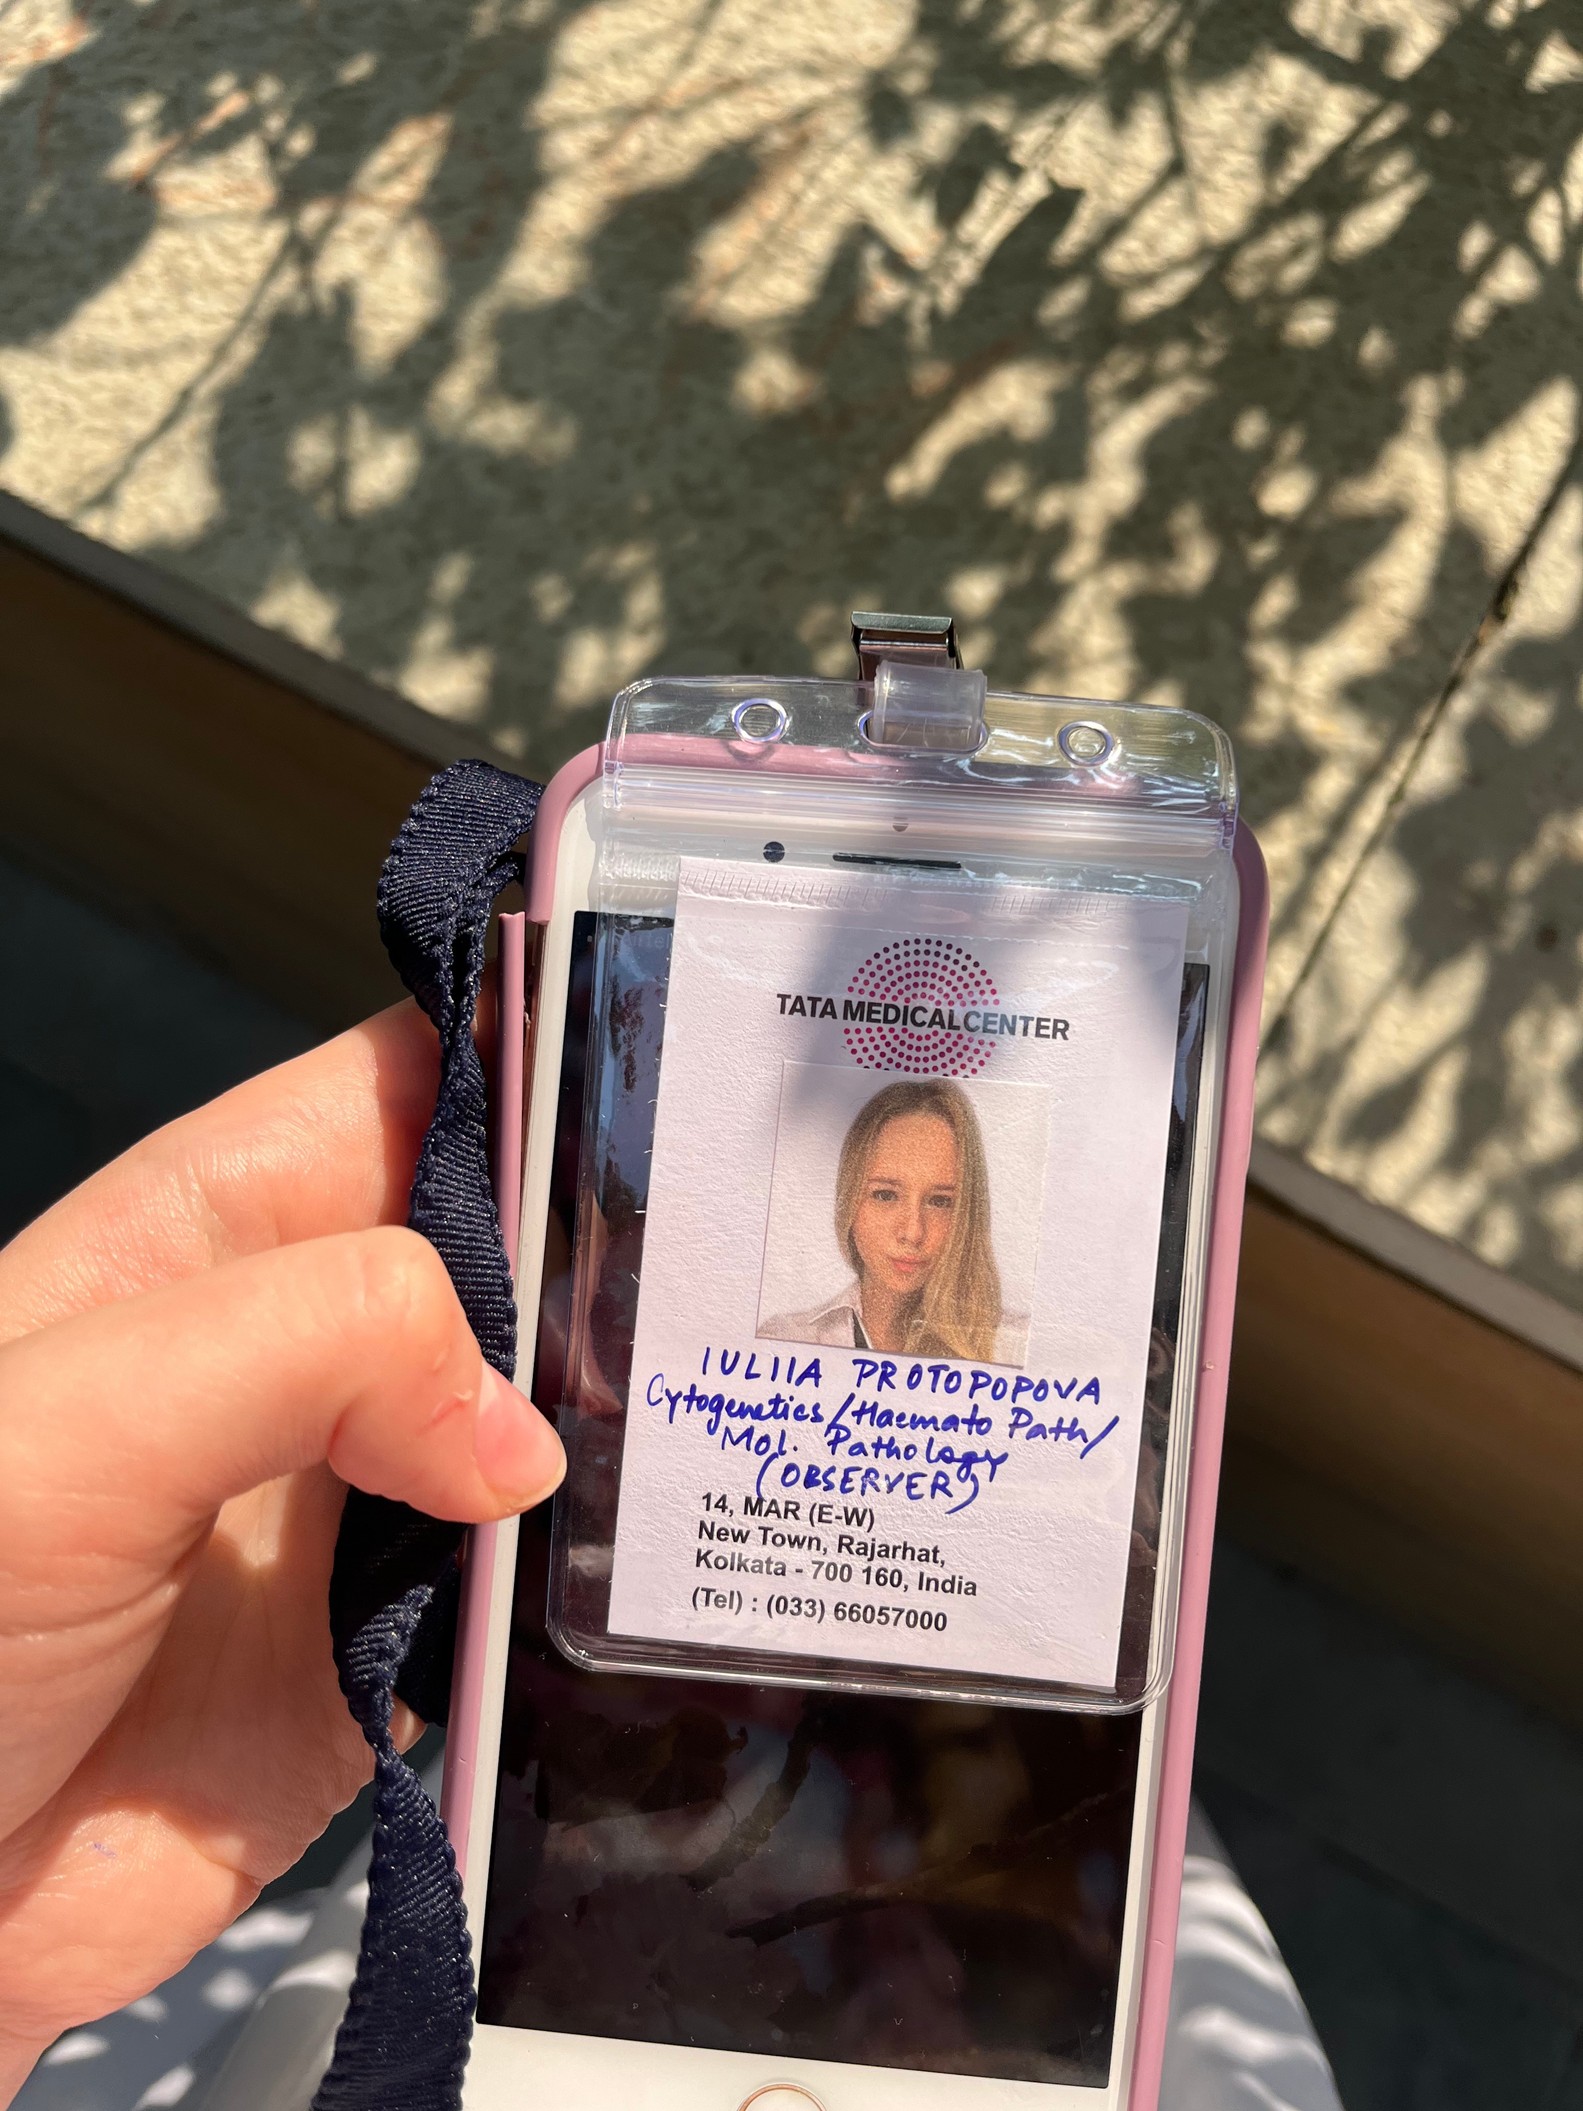 TATA MEDICAL CENTER
IULIIA PROTOPOPOVA
Cytogenetics/Haemato Path/
Mol. Pathology
(OBSERVER)
14, MAR (E-W)
New Town, Rajarhat,
Kolkata - 700 160, India
(Tel) : (033) 66057000